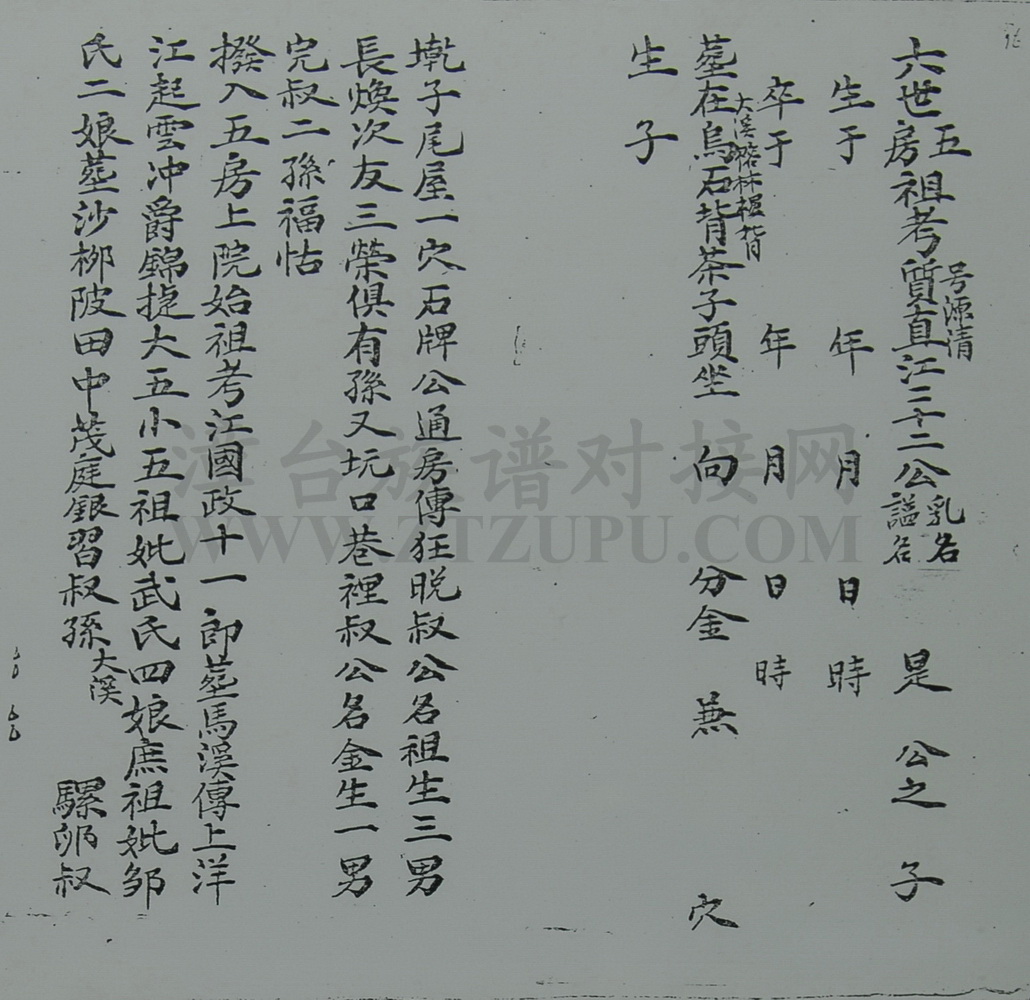 六世五房祖考質直江二十二公 是 公之 子
号源清
乳名
謚名
生于 年 月 日 時
卒于 年 月 日 時
大溪 林 背
塟在烏石背茶子頭坐 向 分金 兼 穴
生 子
墘子尾屋一穴石牌公通房傳狂晚叔公名祖生三男
長煥次友三荣俱有孫又坑口巷裡叔公名金生一男
完叔二孫福怙
撥入五房上院始祖考江國政十一郎塟馬溪傳上洋
江起雲冲爵錦捷大五小五祖妣武氏四娘庶祖妣邹
氏二娘塟沙柳陂田中茂庭銀習叔孫大溪 騾卵叔
漳台族谱对接网
WWW.ZTZUPU.COM